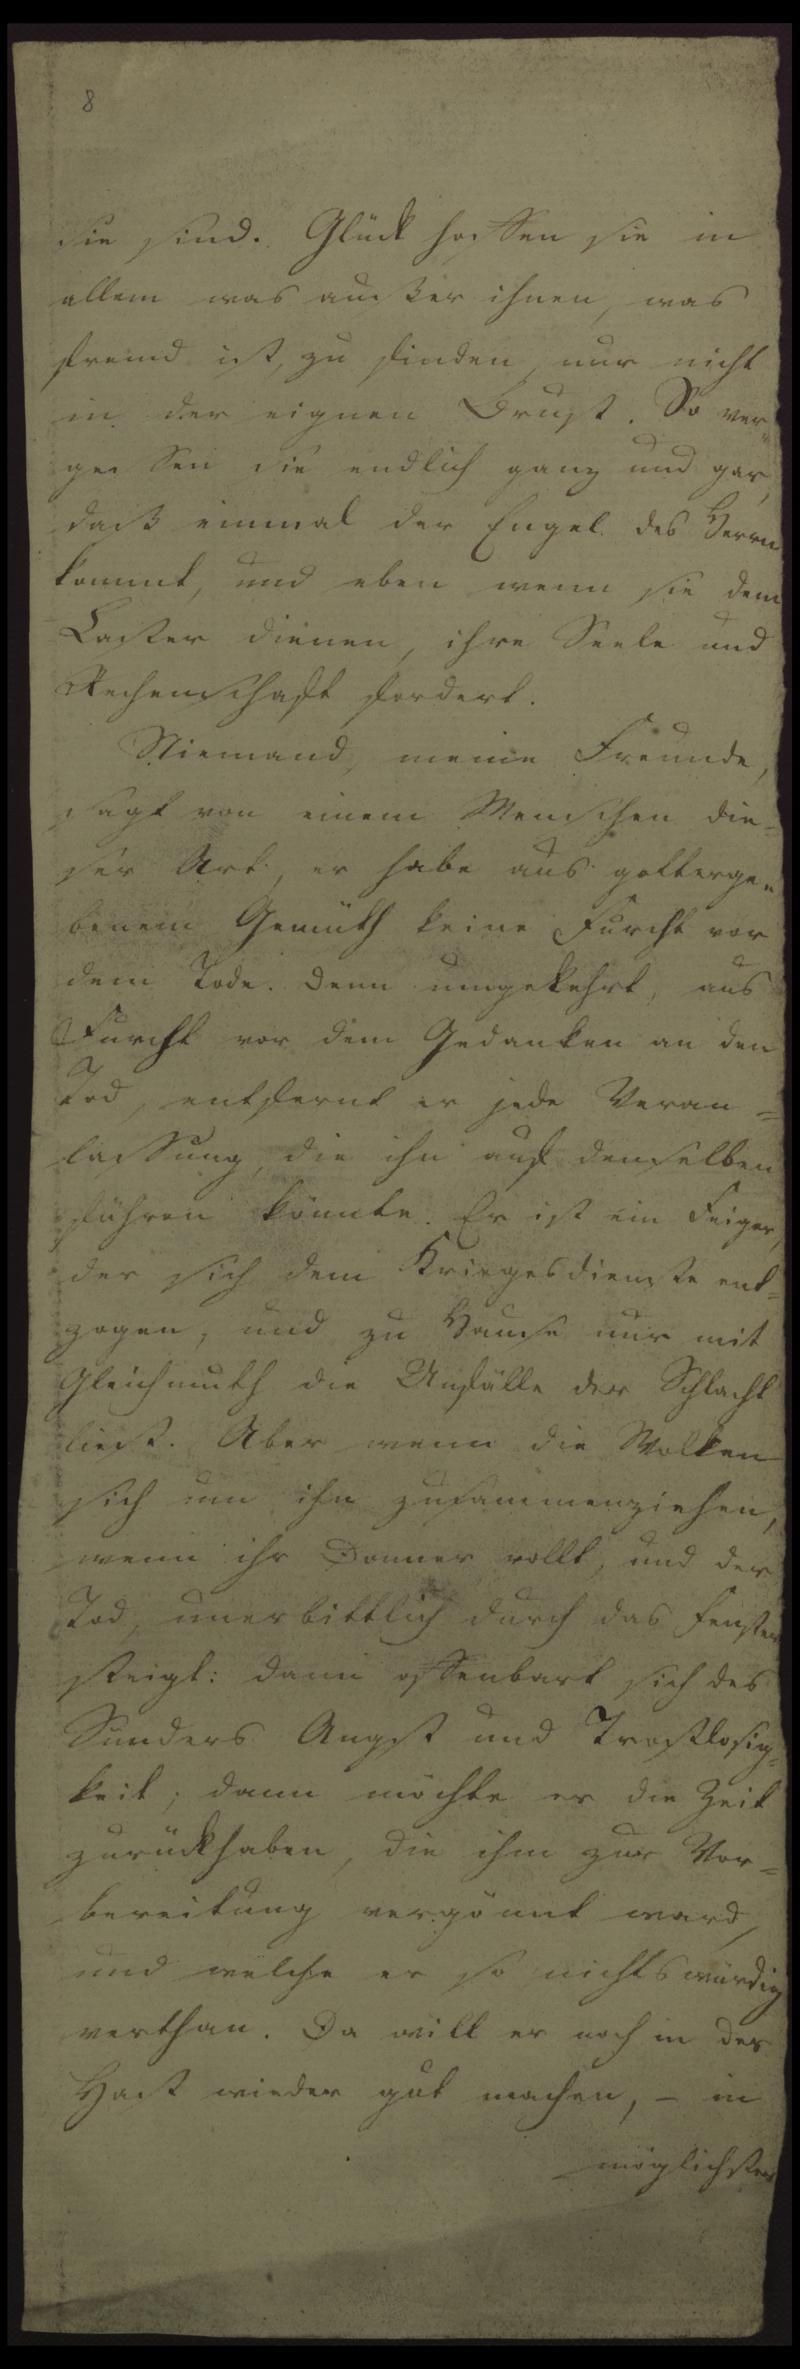 8
sie sind. Glück hoffen sie in
allem was außer ihnen, was
fremd ist, zu finden, nur nicht
in der eignen Brust. So ver=
gessen sie endlich ganz und gar,
daß einmal der Engel des Herrn
kommt, und eben wenn sie dem
Laster dienen, ihre Seele und
Rechenschaft fordert.
Niemand, meine Freunde,
sagt von einem Menschen die=
ser Art, er habe aus gotterge=
benem Gemüth keine Furcht vor
dem Tode. Denn umgekehrt, aus
Furcht vor dem Gedanken an den
Tod, entfernt er jede Veran=
lassung, die ihn auf denselben
führen könnte. Er ist ein Feiger,
der sich dem Kriegesdienste ent=
zogen, und zu Hause nur mit
Gleichmuth die Unfälle der Schlacht
liest. Aber wenn die Wolken
sich um ihn zusammenziehen,
wenn ihr Donner rollt, und der
Tod, unerbittlich durch das Fenster
steigt: dann offenbart sich des
Sünders Angst und Trostlosig=
keit; dann möchte er die Zeit
zurückhaben, die ihm zur Vor=
bereitung vergönnt ward,
und welche er so nichtswürdig
verthan. Da will er noch in der
Hast wieder gut machen, – in
möglichster